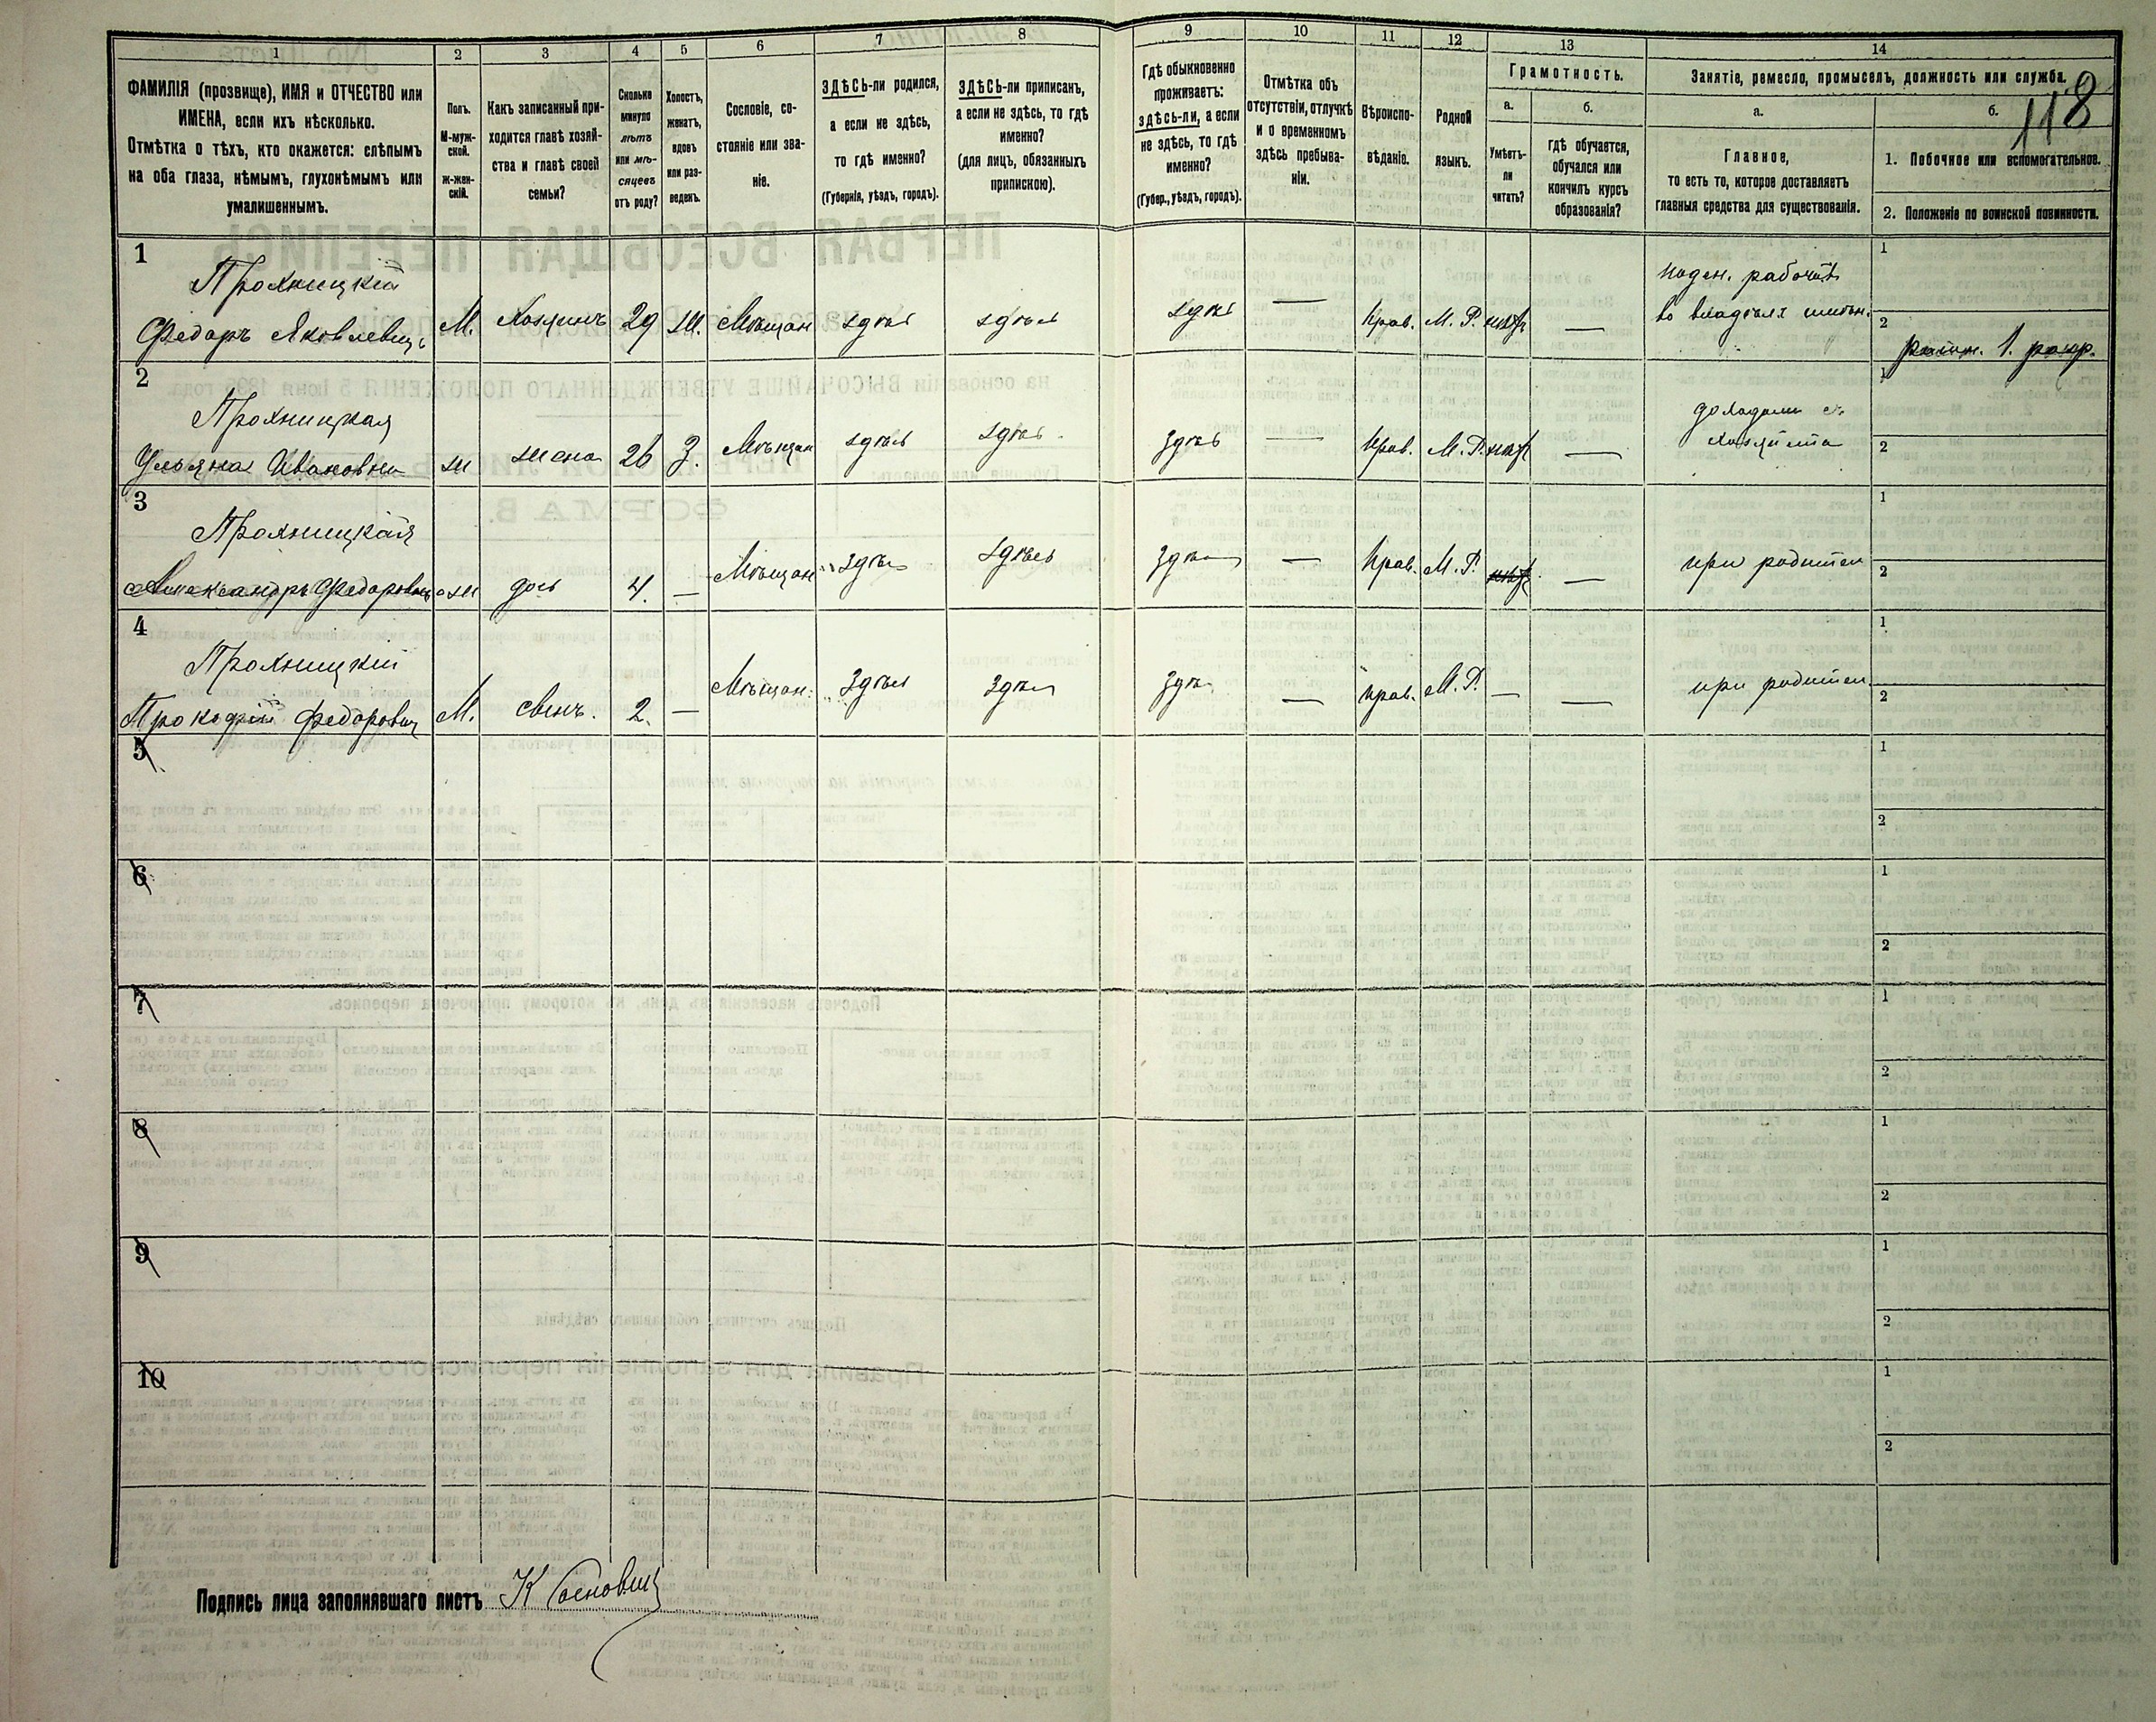 118
1 2 3 4 5 6 7 8 9 10 11 12 13 14
ФАМИЛІЯ (прозвище), ИМЯ и ОТЧЕСТВО или
ИМЕНА, если ихъ нѣсколько.
Отмѣтка о тѣхъ, кто окажется: слѣпымъ
на оба глаза, нѣмымъ, глухонѣмымъ или
умалишеннымъ.
Полъ.
М-муж-
ской.
ж-жен-
скій.
Какъ записанный при-
ходится главѣ хозяй-
ства и главѣ своей
семьи?
Сколько
минуло
лѣтъ
или мѣ-
сяцевъ
отъ роду?
Холостъ,
женатъ,
вдовъ
или раз-
веденъ.
Сословіе, со-
стояніе или зва-
ніе.
ЗДѢСЬ-ли родился,
а если не здѣсь,
то гдѣ именно?
(Губернія, уѣздъ, городъ).
ЗДѢСЬ-ли приписан,
а если не здѣсь, то гдѣ
именно?
(для лицъ, обязанныхъ
припискою).
Гдѣ обыкновенно
проживаетъ:
здѣсь-ли, а если
не здѣсь, то гдѣ
именно?
(Губер., уѣздъ, городъ).
Отмѣтка объ
отсутствіи, отлучкѣ
и о временномъ
здѣсь пребыва-
ніи.
Вѣроиспо-
вѣданіе.
Родной
языкъ.
Грамотность.
а. б.
Умѣетъ-
ли
читать?
гдѣ обучается,
обучался или
кончилъ курсъ
образованія?
Занятіе, ремесло, промыселъ, должность или служба.
а. б.
Главное,
то есть то, которое доставляетъ
главныя средства для существованія.
1. Побочное или вспомогательное.
2. Положеніе по воинской повинности.
1
Прохницкій
Федоръ Яковлевичъ М. Хозяинъ 29 ж. Мѣщан здѣсь здѣсь здѣсь — Прав. М. Р. нѣтъ —
поден. рабочій
во владѣл.
1
2
1. разр.
2
Прохницкая
Ульяна Ивановна ж жена 26 З. Мѣщан здѣсь здѣсь здѣсь — Прав. М. Р. нѣтъ —
доходами съ
хозяйства
1
2
3
Прохницкая
Александра Федоровна ж дочь 4. — Мѣщан здѣсь здѣсь здѣсь — Прав. М. Р. нѣтъ —
при родител
1
2
4
Прохницкій
Прокофій Федорович М. сынъ. 2. — Мѣщан. здѣсь здѣсь здѣсь — прав. М. Р. — —
при родител
1
2
5
1
2
6
1
2
7
1
2
8
1
2
9
1
2
10
1
2
Подпись лица заполнявшаго листъ К